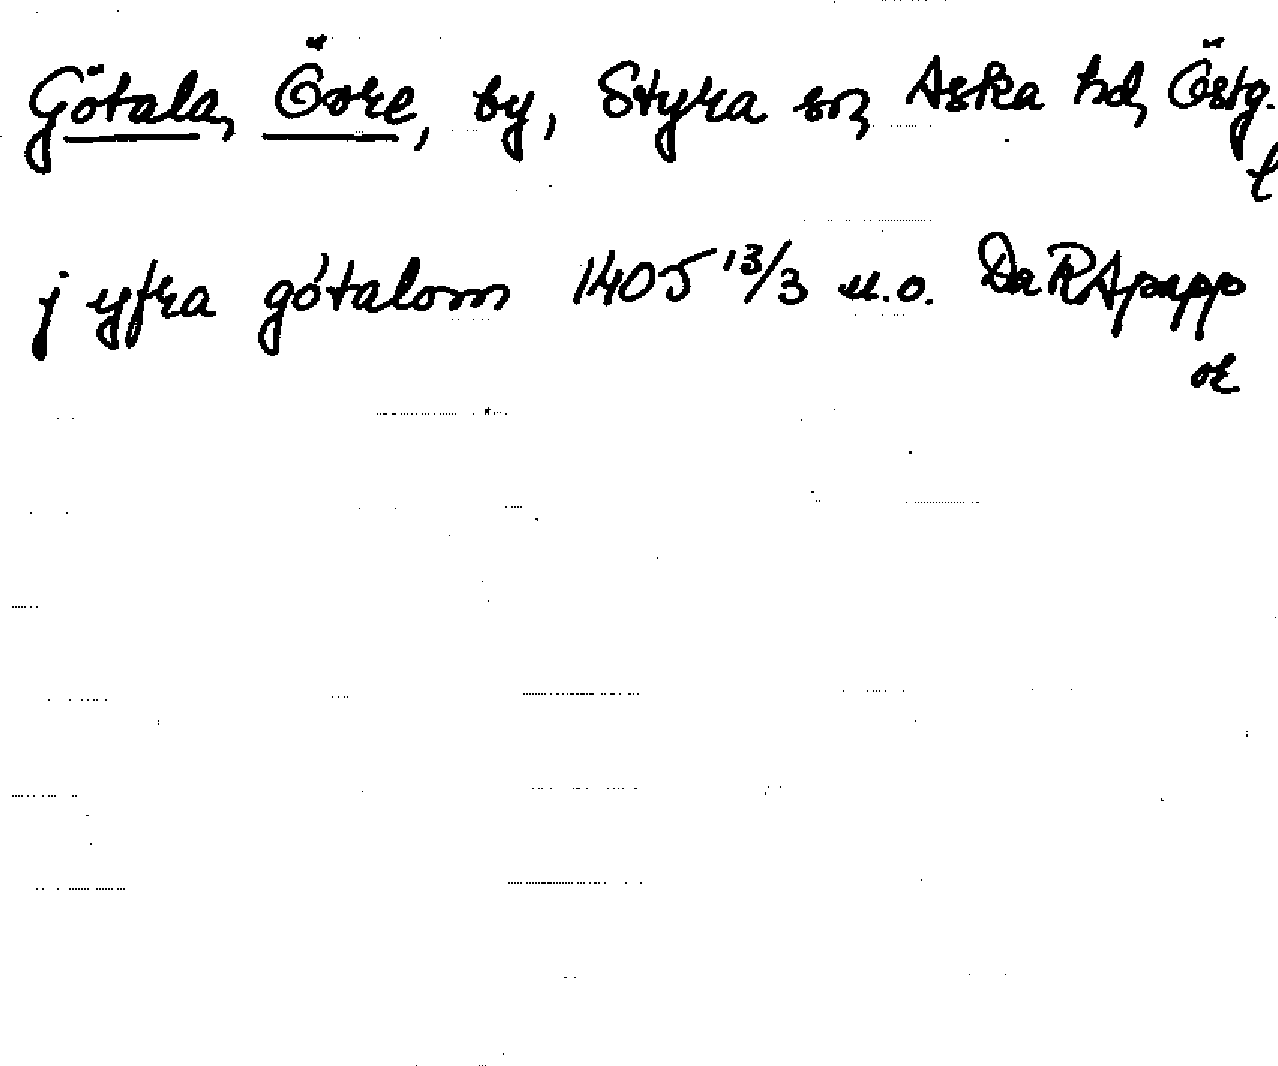 Götala, Övre, by, Styra sn, Aska hd, Östg.
t
j yfra götalom 1405 13/3 u.o. DaRApapp
or